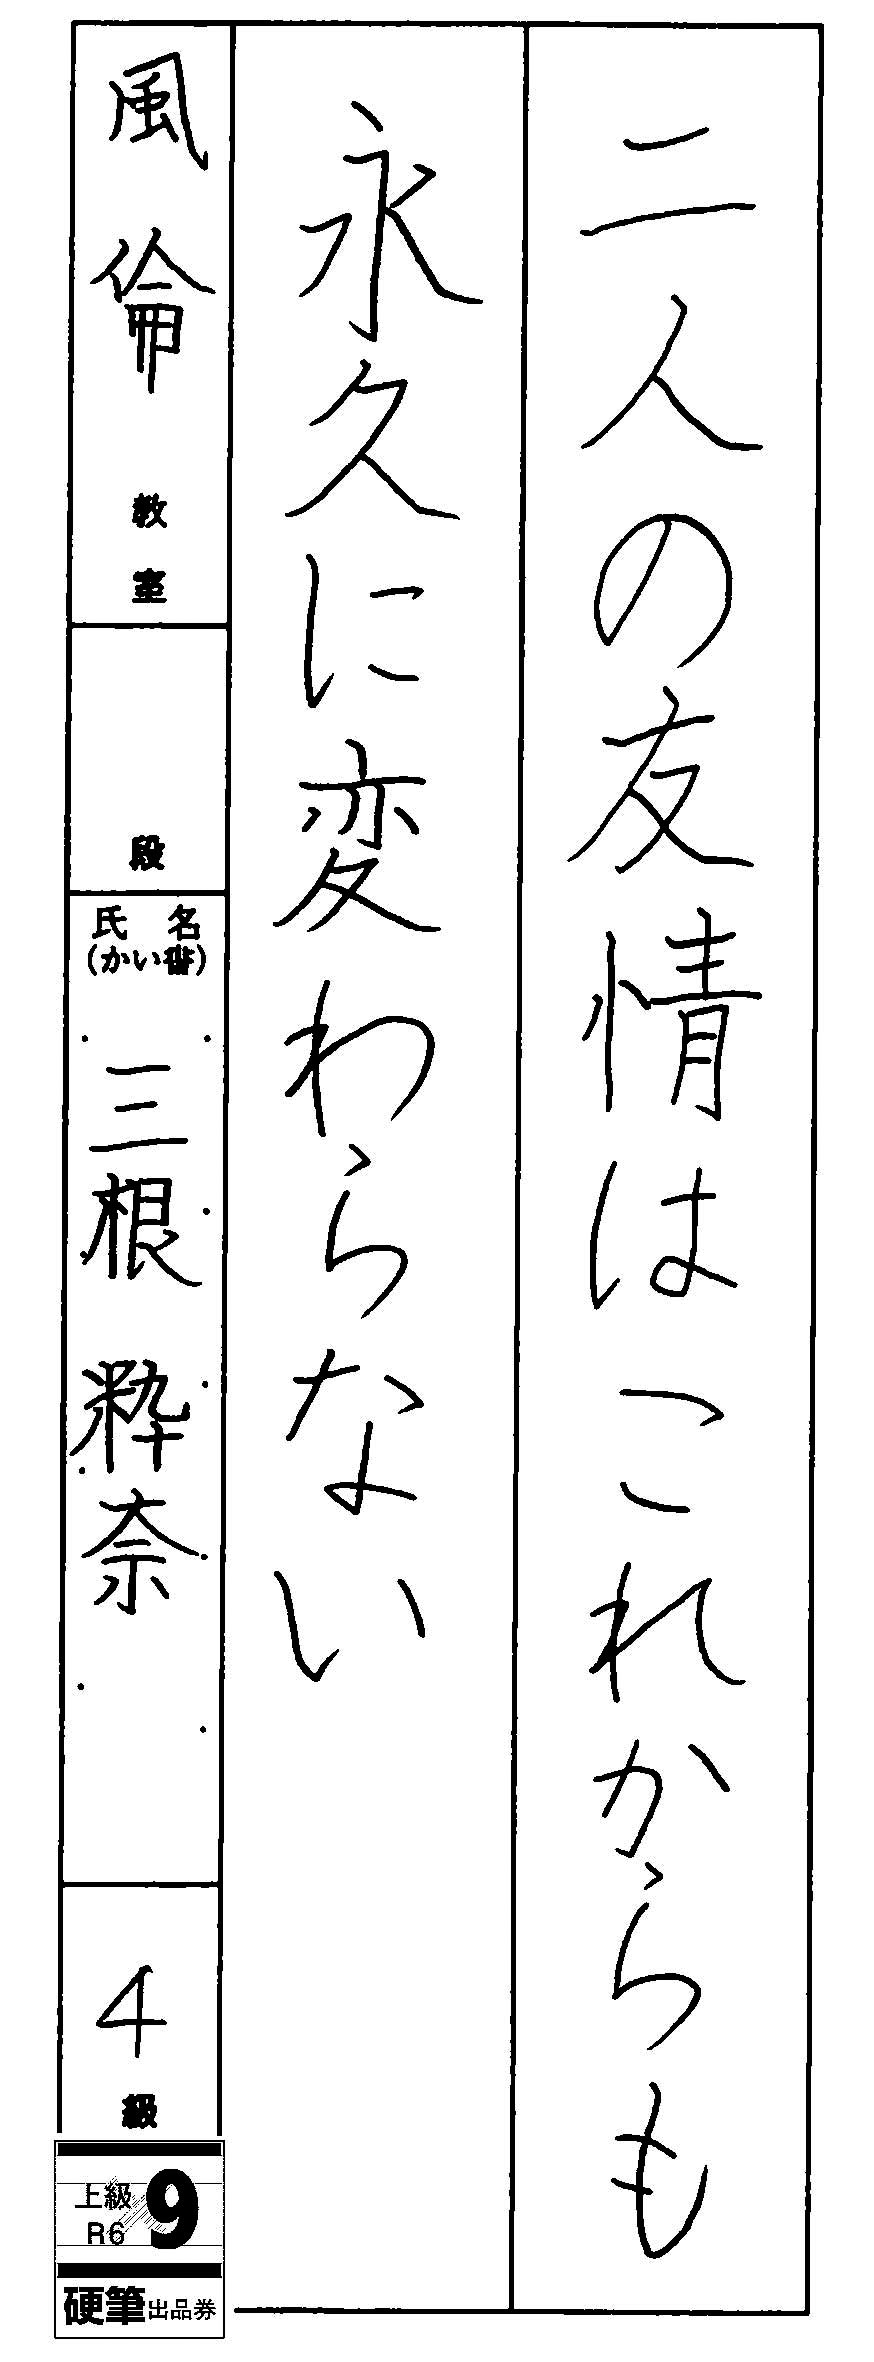 二人の友情はこれからも
永久に変わらない
風倫教室
段
氏名
(かい書)
三根粋奈
4級
上級
R6
9
硬筆出品券